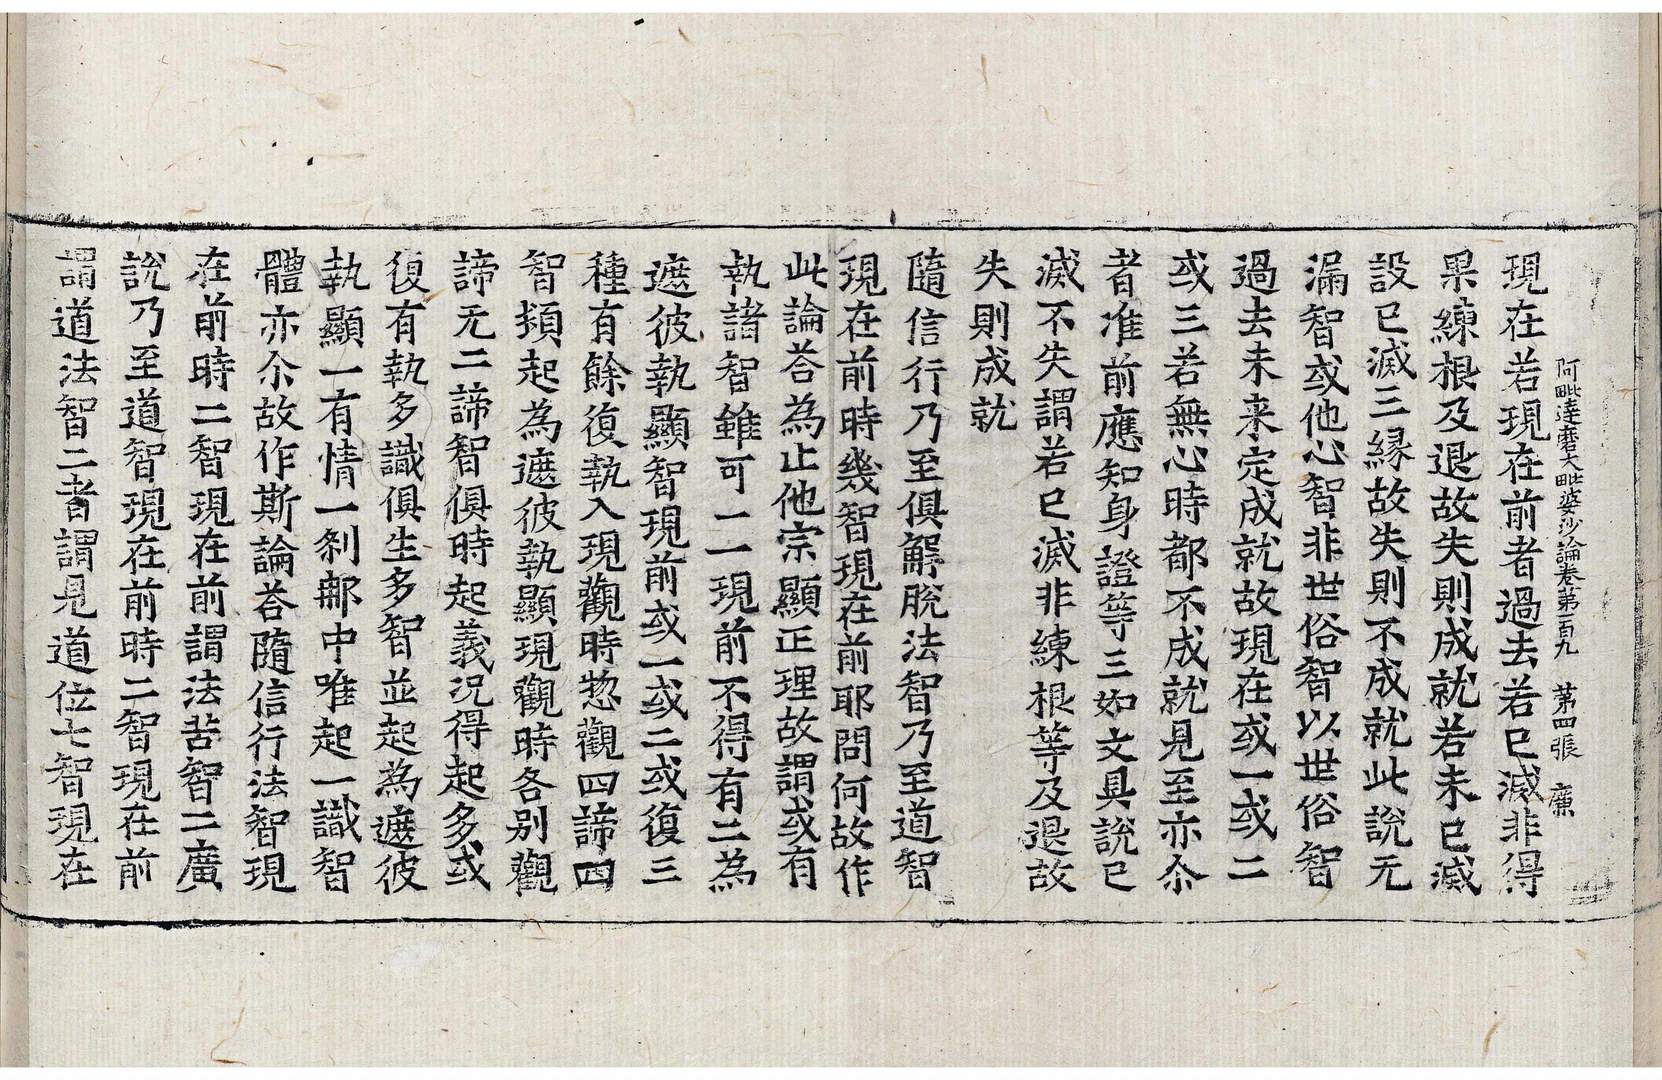 阿毗達磨大毗婆沙論卷第一百九　第四張　廉
現在若現在前者過去若已滅非得
果練根及退故失則成就若未已滅
設已滅三緣故失則不成就此說无
漏智或他心智非世俗智以世俗智
過去未来定成就故現在或一或二
或三若無心時都不成就見至亦尒
者准前應知身證等三如文具說已
滅不失謂若已滅非練根等及退故
失則成就
隨信行乃至俱解脫法智乃至道智
現在前時幾智現在前耶問何故作
此論荅為止他宗顯正理故謂或有
執諸智雖可一一現前不得有二為
遮彼執顯智現前或一或二或復三
種有餘復執入現觀時惣觀四諦四
智頻起為遮彼執顯現觀時各別觀
諦无二諦智俱時起義况得起多或
復有執多識俱生多智並起為遮彼
執顯一有情一剎那中唯起一識智
體亦尒故作斯論荅隨信行法智現
在前時二智現在前謂法苦智二廣
說乃至道智現在前時二智現在前
謂道法智二者謂見道位七智現在